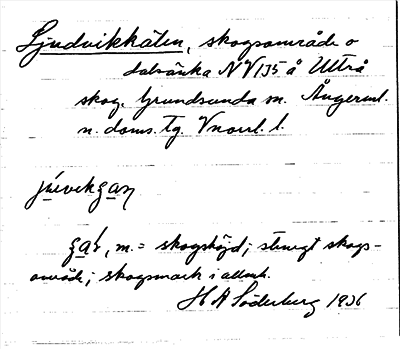 Ljudvikkälen, skogsområde o
dalsänka NV135 å Ultrå
skog. Grundsunda sn. Ångerml.
n. doms. tg. Vnorrl. l.
m. = skogshöjd; stenigt skogs-
område; skogsmark i allmh.
H A Söderberg 1936